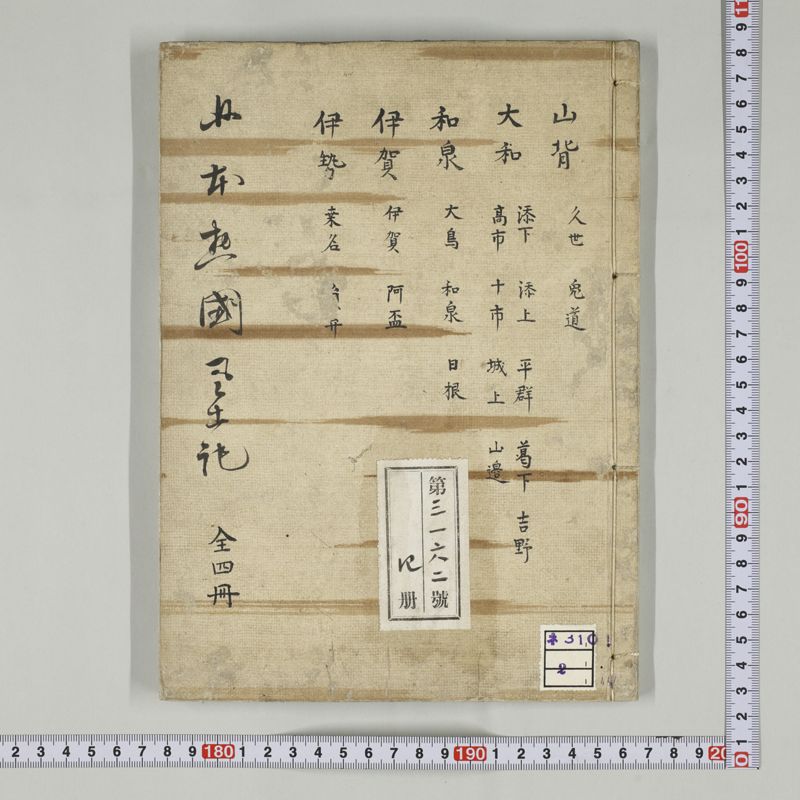 山背 久世 兎道
大和 添下 添上 平群 葛下 吉野
高市 十市 城上 山邊
和泉 大鳥 和泉 日根
伊賀 伊賀 阿盃
伊勢 桑名
日本惣國風土記 全四冊
第三一六二號
册
2